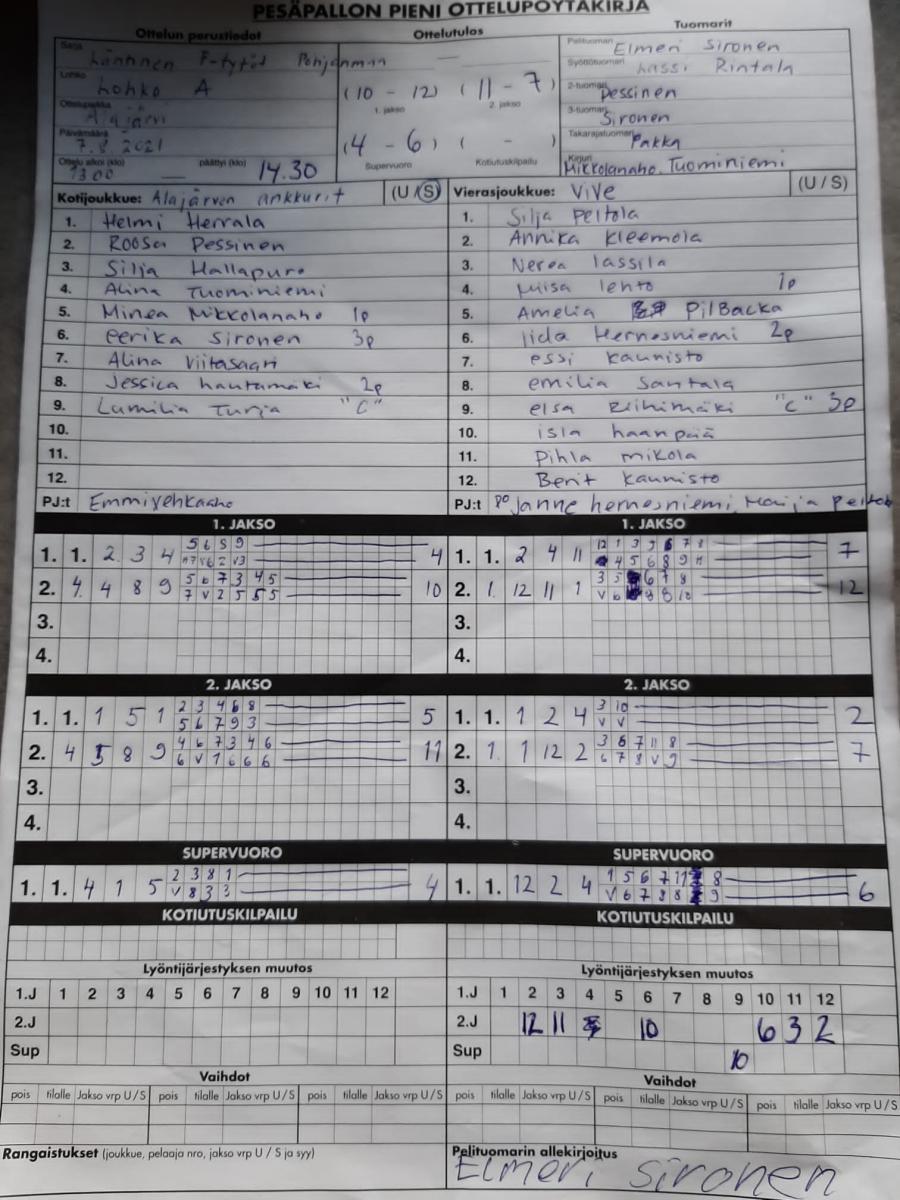 PESÄPALLON PIENI OTTELUPÖYTÄKIRJA
Ottelun perustiedot
Ottelutulos
Tuomarit
Sarja
Läntinen F-tytöt Pohjanmaa
Lohko
Lohko A
Ottelupaikka
Alajärvi
Päivämäärä
7.8.2021
Ottelu alkoi (klo) päättyi (klo)
1300 — 14.30
(10 - 12) (11 - 7)
1. jakso 2. jakso
(4 - 6) ( - )
Supervuoro Kotiutuskilpailu
Pelituomari Elmeri Sironen
Syöttötuomari Lassi Rintala
2-tuomari Pessinen
3-tuomari Sironen
Takarajatuomari Pakka
Kirjuri
Mikkolanaho, Tuominiemi
Kotijoukkue: Alajärven ankkurit (U/S)
1. Helmi Herrala
2. Roosa Pessinen
3. Silja Hallapuro
4. Alina Tuominiemi
5. Minea Mikkolanaho 1p
6. eerika Sironen 3p
7. Alina Viitasaari
8. Jessica hautamäki 2p
9. Lumilia Turja "C"
10.
11.
12.
PJ:t
Vierasjoukkue: ViVe (U/S)
1. Silja Peltola
2. Annika Kleemola
3. Nerea lassila
4. lehto 1p
5. Amelia PilBacka
6. Iida Hernesniemi 2p
7. essi kaunisto
8. emilia Santala
9. elsa Riihimäki "C" 3p
10. isla haanpää
11. Pihla mikola
12. Berit kaunisto
PJ:t Janne hernesniemi, Maija
1. JAKSO
1. 1. 2 3 4 5 6 8 9 4
2. 4. 4 8 9 5 6 7 3 4 5 10
7 V 2 5 5 5
3.
4.
1. JAKSO
1. 1. 2 4 11 7
4 5 6 8 9 11
2. 1. 12 11 1 3 5 6 7 8 12
3.
4.
2. JAKSO
1. 1. 1 5 1 2 3 4 6 8 5
5 6 7 9 3
2. 4 5 8 9 4 6 7 3 4 6 11
6 V 1 6 6 6
3.
4.
2. JAKSO
1. 1. 1 2 4 3 10 2
V V
2. 1. 1 12 2 3 6 7 11 8 7
6 7 8 V 9
3.
4.
SUPERVUORO
1. 1. 4 1 5 2 3 8 1 4
V 8 3 3
SUPERVUORO
1. 1. 12 2 4 1 5 6 7 11 8 6
V 6 7 8 8 9
KOTIUTUSKILPAILU
KOTIUTUSKILPAILU
Lyöntijärjestyksen muutos
1.J 1 2 3 4 5 6 7 8 9 10 11 12
2.J
Sup
Lyöntijärjestyksen muutos
1.J 1 2 3 4 5 6 7 8 9 10 11 12
2.J 12 11 10 6 3 2
Sup 10
Vaihdot
pois tilalle Jakso vrp U/S pois tilalle Jakso vrp U/S pois tilalle Jakso vrp U/S
Vaihdot
pois tilalle Jakso vrp U/S pois tilalle Jakso vrp U/S pois tilalle Jakso vrp U/S
Rangaistukset (joukkue, pelaaja nro, jakso vrp U / S ja syy)
Pelituomarin allekirjoitus
Elmeri Sironen